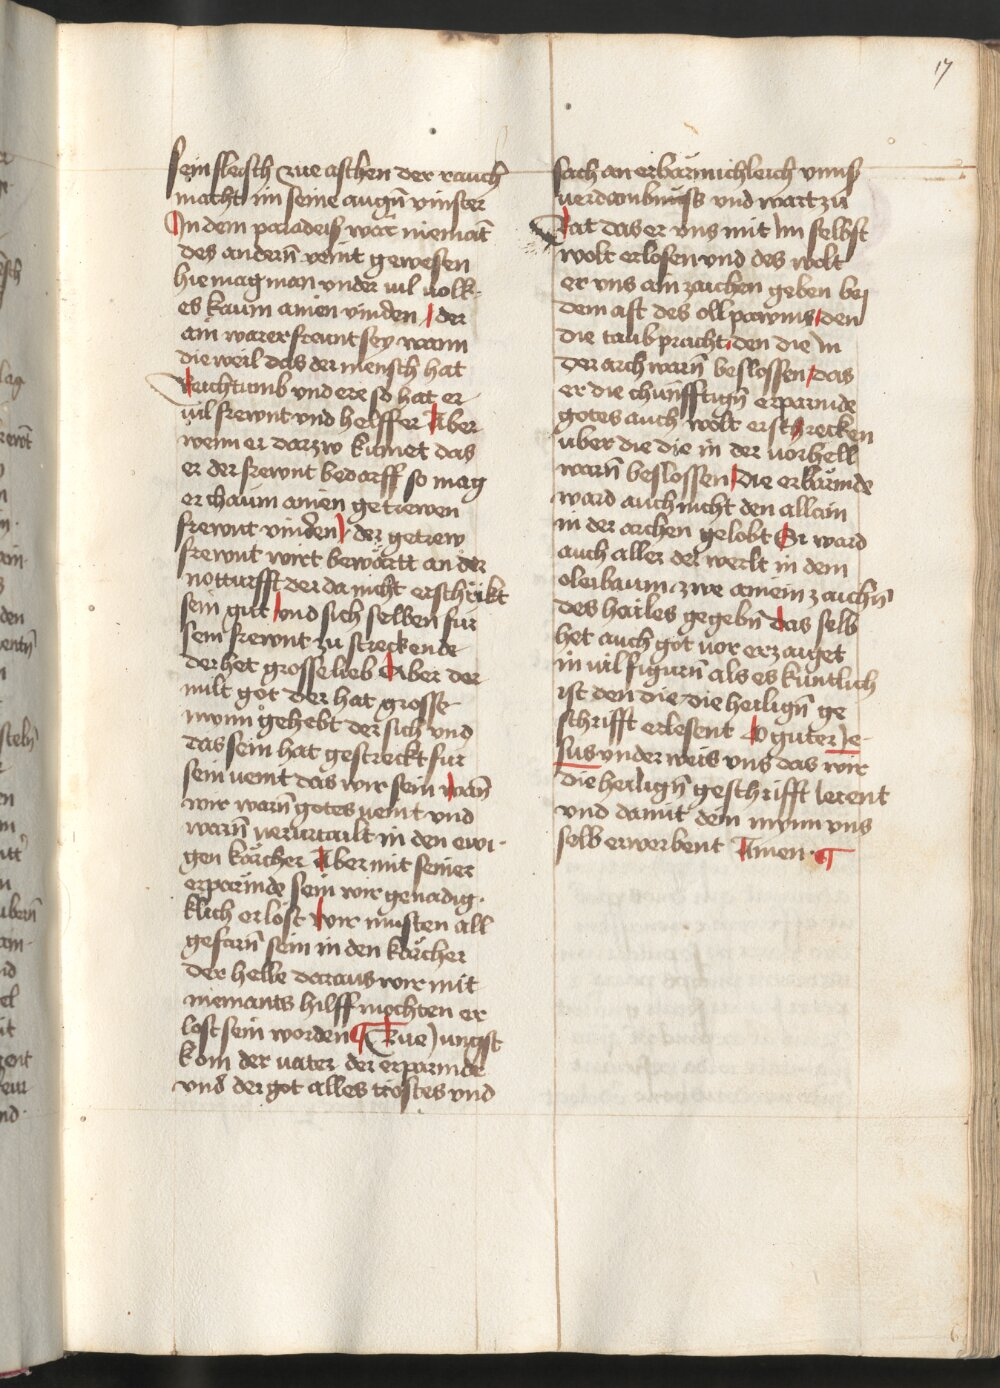 17
sein fleisch zue aschen der rauch
macht im seine augn̄ vinster
In dem paradeiß wār niemāt
des andern̄ veint gewesen
hie mag man vnder uil uolk·
es kaum ainen vinden / der
ain warer freunt sey wann
die weil das der mensch hat
Reichtumb vnd ere so hat er
uil frewnt vnd helffer Aber
wenn er darzw kumet das
er der frewnt bedarff so mag
er chaum ainen getrewen
frewnt vinden / der getrew
frewnt wirt bewārtt an der
notturfft der da nicht erschrikt
sein gut vnd sich selben fur
sein frewnt zu streckende
der het grosse lieb Aber der
milt got der hat grosse
mynn gehebt der sich vnd
das sein hat gestreckt fur
sein veint das wir sein wan̄
wir warn̄ gotes veint vnd
warn̄ verurtailt in den ewi·
gen kārcher Aber mit seiner
erparmde sein wir genadig·
klich erlost wir musten all
gefarn̄ sein in den kārcher
der helle daraus wir mit
niemants hilff mochten er
lost sein worden ¶ Zue Jungst
kom der uater der erparmde
vnd der got alles trostes vnd
sach an erbārmichleich vnns̄
verdambnuss vnd wart zu
Rat das er vns mit Im selbst
wolt erlosen vnd des wolt
er vns ain zaichen geben bei
dem ast des ollpawms / den
die taub pracht / den die In
der arch warn̄ beslossen / das
er die chunfftign̄ erparmde
gotes auch wolt erstrecken
vber die die in der uorhell
warn̄ beslossen / die erbārmde
ward auch nicht den allain
in der archen gelobt Si ward
auch aller der werlt in dem
oleibaum zwe ainem zaichn̄
des hailes gegebn̄ das selb
het auch got vor erzaiget
in uil figurn̄ als es kuntlich
ist den die die heilign̄ ge
schrifft erlesent O guter Je·
sus vnderweis vns das wir
die heilign̄ geschrifft lerent
vnd damit dein mynn vns
selb erwerbent Amen · ¶